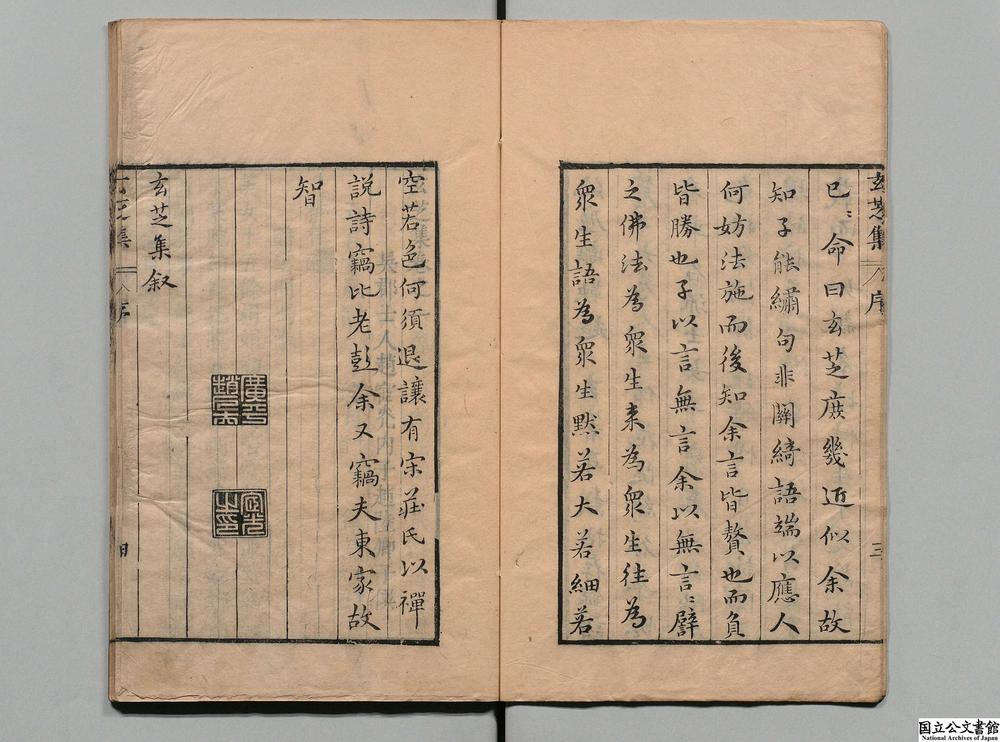 玄芝集
序
三
已〻命曰玄芝庻幾近似余故
知子能繡句非關綺語端以應人
何妨法施而後知余言皆贅也而負
皆勝也子以言無言余以無言〻譬
之佛法為衆生来為衆生往為
衆生語為衆生黙若大若細若
空若色何須退讓有宋莊氏以禪
說詩竊比老彭余又竊夫東家故
智
玄芝集叙
國立公文書館
National Archives of Japan